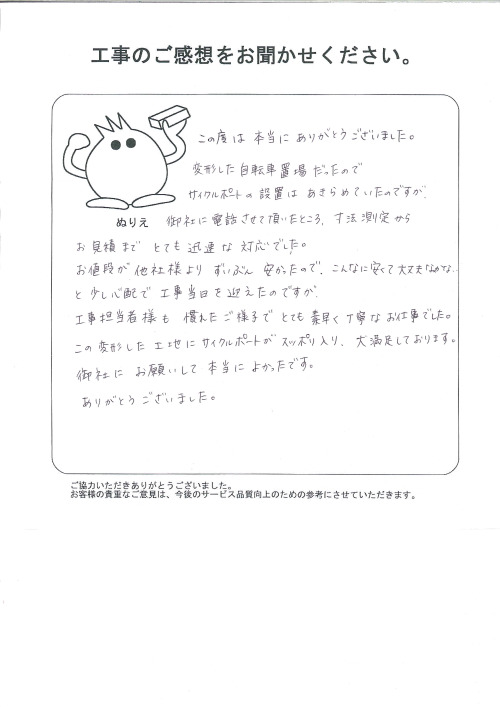 工事のご感想をお聞かせください。
この度は 本当に ありがとうございました。
変形した 自転車置場 だったので
サイクルポートの設置は あきらめていたのですが、
ぬりえ
御社に電話させて頂いたところ、寸法測定から
お見積まで とても 迅速な 対応でした。
お値段が 他社様より ずいぶん 安かったので、こんなに安くて大丈夫なかな…
と 少し心配で 工事当日を 迎えたのですが、
工事担当者様も 慣れたご様子で とても 素早く丁寧なお仕事でした。
この 変形した 土地に サイクルポートが スッポリ入り、大満足しております。
御社に お願いして 本当に よかったです。
ありがとう ございました。
ご協力いただきありがとうございました。
お客様の貴重なご意見は、今後のサービス品質向上のための参考にさせていただきます。